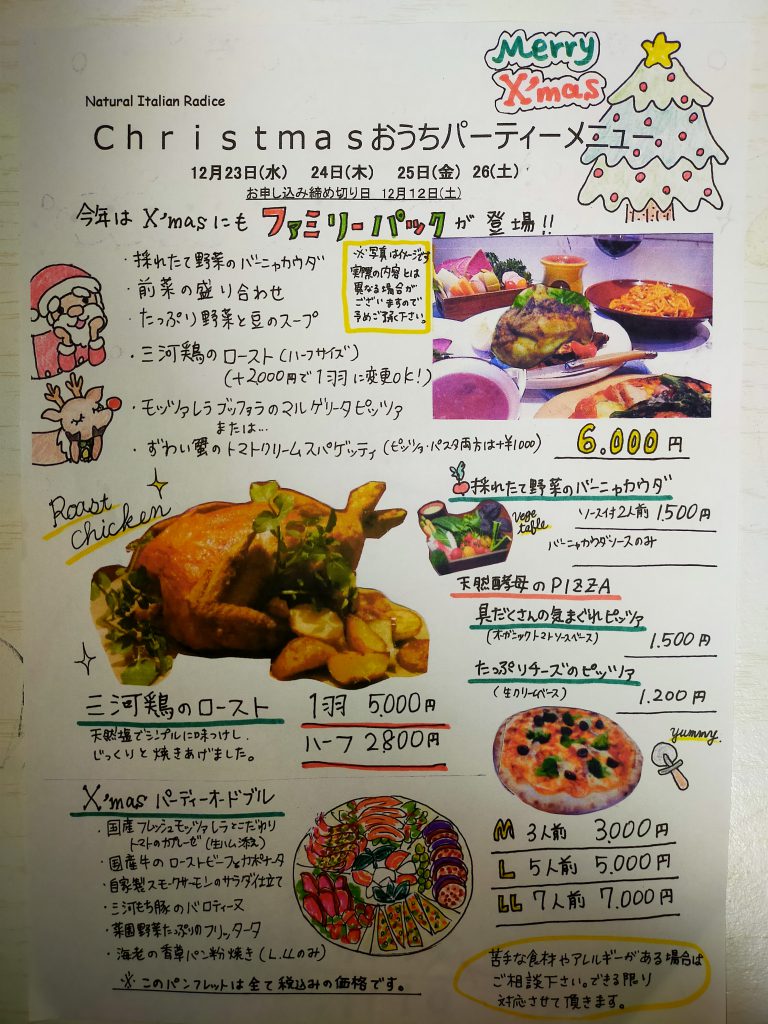 Merry
X'mas
Natural Italian Radice
Ｃｈｒｉｓｔｍａｓおうちパーティーメニュー
12月23日(水)　24日(木)　25日(金)　26(土)
お申し込み締め切り日　12月12日(土)
今年は X'masにも ファミリーパックが登場!!
・採れたて野菜のバーニャカウダ
・前菜の盛り合わせ
・たっぷり野菜と豆のスープ
・三河鶏のロースト(ハーフサイズ)
(+2,000円で1羽に変更OK!)
・モッツァレラブッファラのマルゲリータピッツァ
または…
・ずわい蟹のトマトクリームスパゲッティ(ピッツァ・パスタ両方は+¥1000)
※写真はイメージです
実際の内容とは
異なる場合が
ございますので
予めご了承下さい。
6.000円
Roast
chicken
採れたて野菜のバーニャカウダ
Vege
table
ソース付2人前 1.500円
バーニャカウダソースのみ
天然酵母のPIZZA
具だくさんの気まぐれピッツァ
(オーガニックトマトソースベース)
1.500円
たっぷりチーズのピッツァ
(生クリームベース)
1.200円
yummy.
三河鶏のロースト
天然塩でシンプルに味つけし、
じっくりと焼きあげました。
1羽 5.000円
ハーフ 2.800円
X'masパーティーオードブル
・国産フレッシュモッツァレラとこだわり
トマトのカプレーゼ(生ハム添え)
・国産牛のローストビーフ&カポナータ
・自家製スモークサーモンのサラダ仕立て
・三河もち豚のバロティーヌ
・菜園野菜たっぷりのフリッタータ
・海老の香草パン粉焼き(L.LLのみ)
※このパンフレットは全て税込みの価格です。
M 3人前 3.000円
L 5人前 5.000円
LL 7人前 7.000円
苦手な食材やアレルギーがある場合は
ご相談下さい。できる限り
対応させて頂きます。